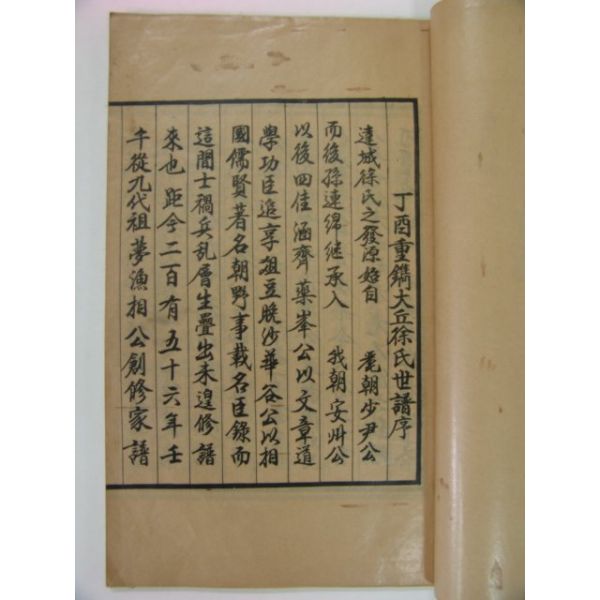 丁酉重鐫大丘徐氏世譜序
達城徐氏之發源始自 麗朝少尹公
而後孫連綿継承入 我朝安州公
以後四佳涵齊藥峯公以文章道
學功臣追享俎豆晩沙華谷公以相
國儒賢著名朝野事載名臣錄而
這間士禍兵乱層生疊出未遑修譜
來也 距今二百有五十六年壬
午從九代祖夢漁相公創修家譜